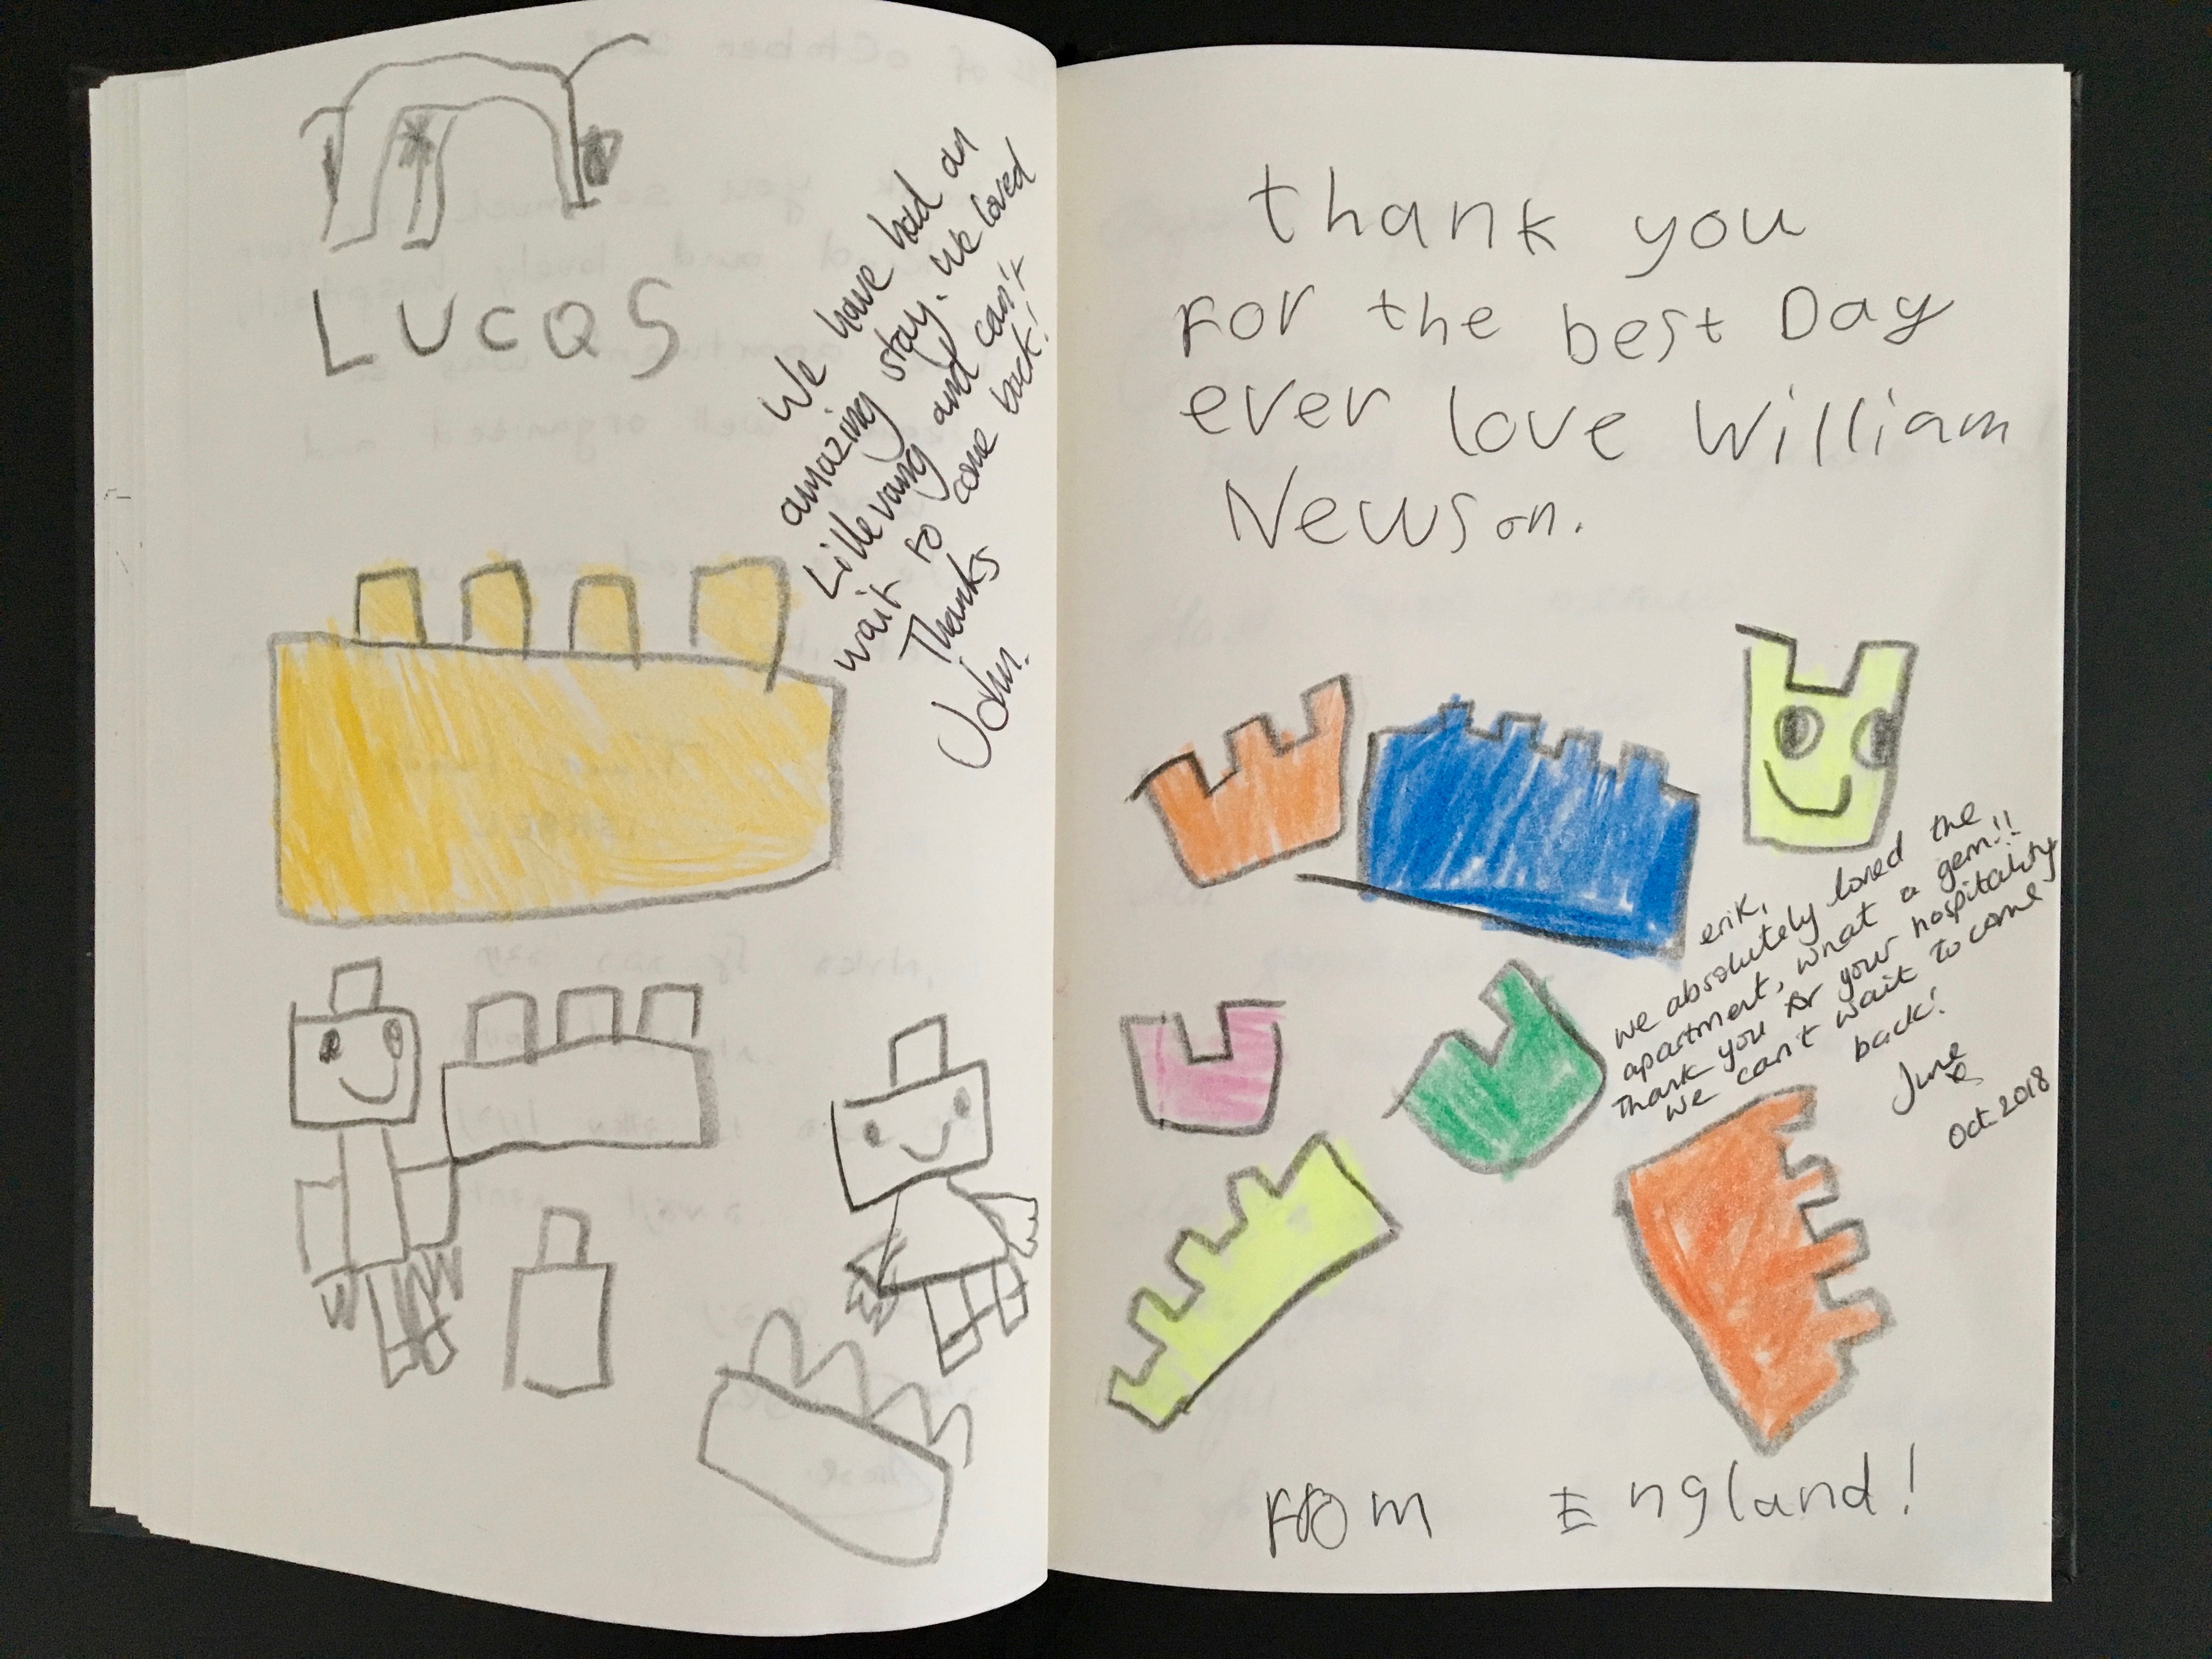 LUCAS
We have had an
amazing stay. We loved
Lillevang and can't
wait to come back!
Thanks
John.
thank you
For the best Day
ever love William
Newson.
erik,
we absolutely loved the
apartment, what a gem!!
Thank you for your hospitality
we can't wait to come
back!
June
Oct 2018
From England!